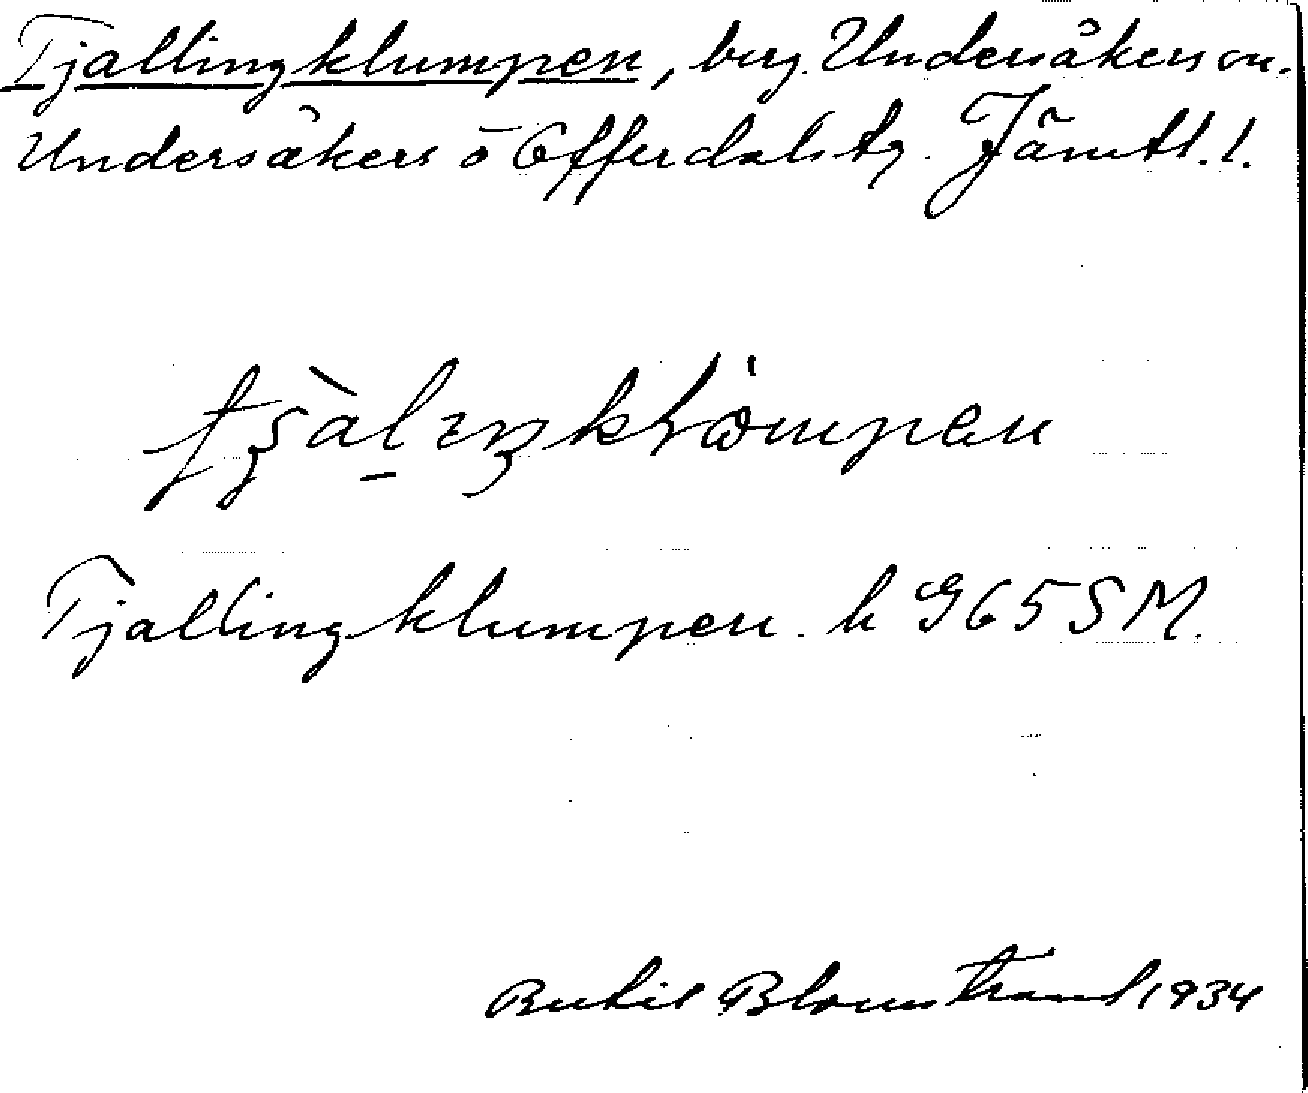 Tjallingklumpen, berg. Undersåkers sn.
Undersåkers o Offerdals tg. Jämtl. l.
Tjallingklumpen. h 965 SM.
Bertil Blomstrand 1934